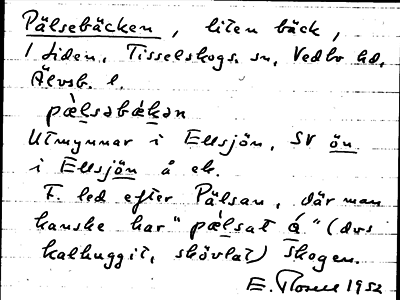 Pälsebäcken, liten bäck,
i Liden, Tisselskogs sn, Vedbo hd,
Älvsb. l.
pæ̀lsəbækən
Utmynnar i Ellsjön, SV ön
i Ellsjön å ek.
F. led efter Pälsan, där man
kanske har "pælsat á" (dvs
kalhuggit, skövlat) skogen.
E. 1952